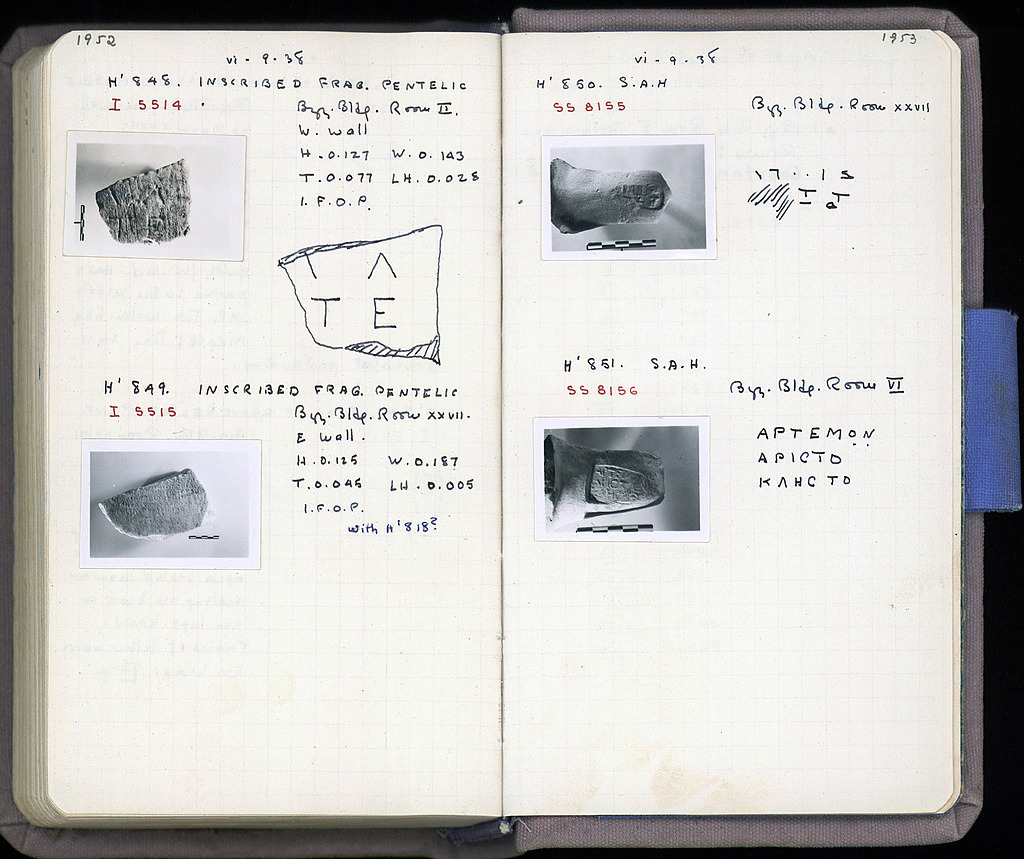 1952
vi - 9 - 38
H' 848. INSCRIBED FRAG. PENTELIC
I 5514
Byz. Bldg. Room II.
W. Wall
H. 0.127 W. 0.143
T. 0.077 LH. 0.028
I. F. O. P.
T E
H' 849. INSCRIBED FRAG. PENTELIC
I 5515
Byz. Bldg. Room XXVII.
E Wall.
H. 0.125 W. 0.187
T. 0.045 LH. 0.005
I. F. O. P.
with H' 818?
1953
vi - 9 - 38
H' 850. S.A.H
SS 8155
Byz. Bldg. Room XXVII
H' 851. S.A.H.
SS 8156
Byz. Bldg. Room VI
ΑΡΤΕΜΩΝ
ΑΡΙϹΤΟ
ΚΛΗϹ ΤΟ